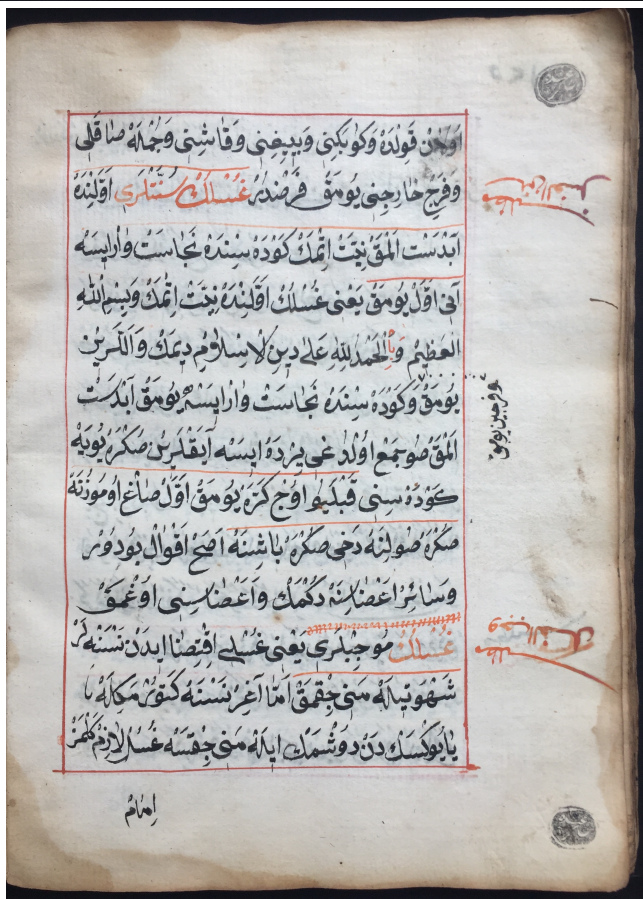 اوچن قولده وكوبكنى وبييغنى وقاشنى وجمله صاقلى
وفرج خارجنى يومق فرضدر غسلك سنتلرى اولنده
ابدست المق نيت اتمك كوده سنده نجاست وارايسه
آنى اول يومق يعنى غسلك اولنده نيت اتمك وبسم الله
العظيم والحمد لله على دين الاسلام ديمك واللرين
يومق وكوده سنده نجاست وارايسه يومق ابدست
المق صو جمع اولدغى يرده ايسه ايقلرين صكره يويه
كوده سنى قبليو اوچ كره يومق اول صاغ اوموزنه
صكره صولنه دخى صكره باشنه اصح اقوال بودور
وسائر اعضاسنه دكمك واعضاسنى اوغمق
غسلك موجبلرى يعنى غسلى اقتضا ايدن نسنه لر
شهوتيله منى چقمق اما آغر نسنه كتورمكله يا
يا يوكسك دن دوشمك ايله منى چقسه غسل لازم كلمز
امام
وفرجين يومق
مطلب سنن الغسل